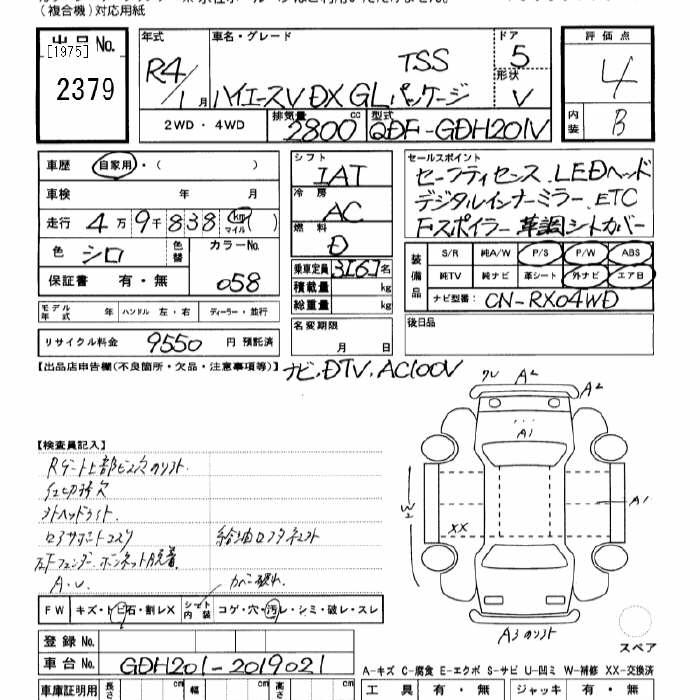 (複合機)対応用紙
出品No.
[1975]
2379
年式
R4/1月
車名・グレード
TSS
ハイエースV DX GLパッケージ
ドア
5
形状
V
2WD・4WD
排気量
2800cc
型式
QDF-GDH201V
評価点
4
内装
B
車歴 自家用・( )
車検 年 月
走行 4万9千838 km マイル ( )
色 シロ 色替 カラーNo. 058
保証書 有・無
モデル年式 年 ハンドル 左・右 ディーラー・並行
リサイクル料金 9550 円 預託済
シフト
IAT
冷房
AC
燃料
D
乗車定員 3[6]名
積載量 kg
総重量 kg
名変期限
月 日
セールスポイント
セーフティセンス.LEDヘッド
デジタルインナーミラー.ETC
Fスポイラー 革調シートカバー
装備品
S/R 純A/W P/S P/W ABS
純TV 純ナビ 革シート 外ナビ エア日
ナビ型番: CN-RX04WD
後日品
【出品店申告欄(不良箇所・欠品・注意事項等)】
ナビ.DTV.AC100V
【検査員記入】
A.U.
FW キズ・トビ石・割レX シート内装 コゲ・穴・汚レ・シミ・破レ・スレ
A2
A2
A1
A1
W2
XX
スペア
登録No.
車台No. GDH201-2019021
A-キズ C-腐食 E-エクボ S-サビ U-凹ミ W-補修 XX-交換済
車庫証明用 長さ cm 幅 cm 高さ cm
工具 有・無 ジャッキ 有・無